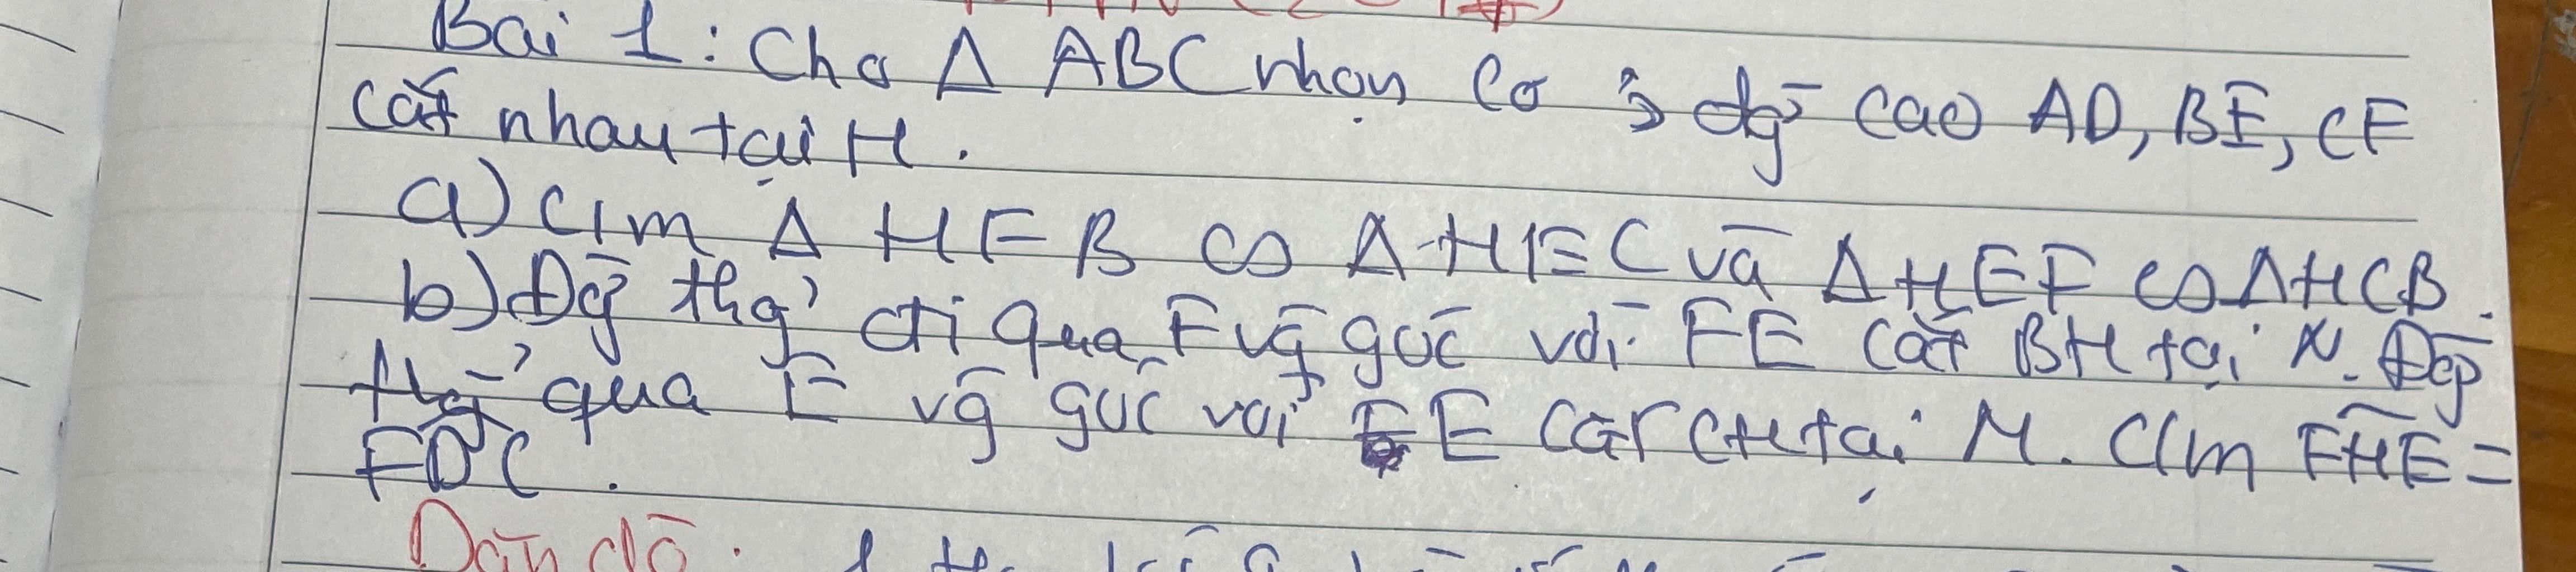 Bài 1: Cho Δ ABC nhọn có 3 đg̀ cao AD, BE, CF
cắt nhau tại H.
a) C/m Δ HFB ∽ Δ HEC và Δ HEF ∽ Δ HCB.
b) Đg̀ thg̉ đi qua F vḡ góc với FE cắt BH tại N. Đg̀
thg̉ qua E vḡ góc với FE cắt CH tại M. C/m FHE =
FDC.
Dặn dò: